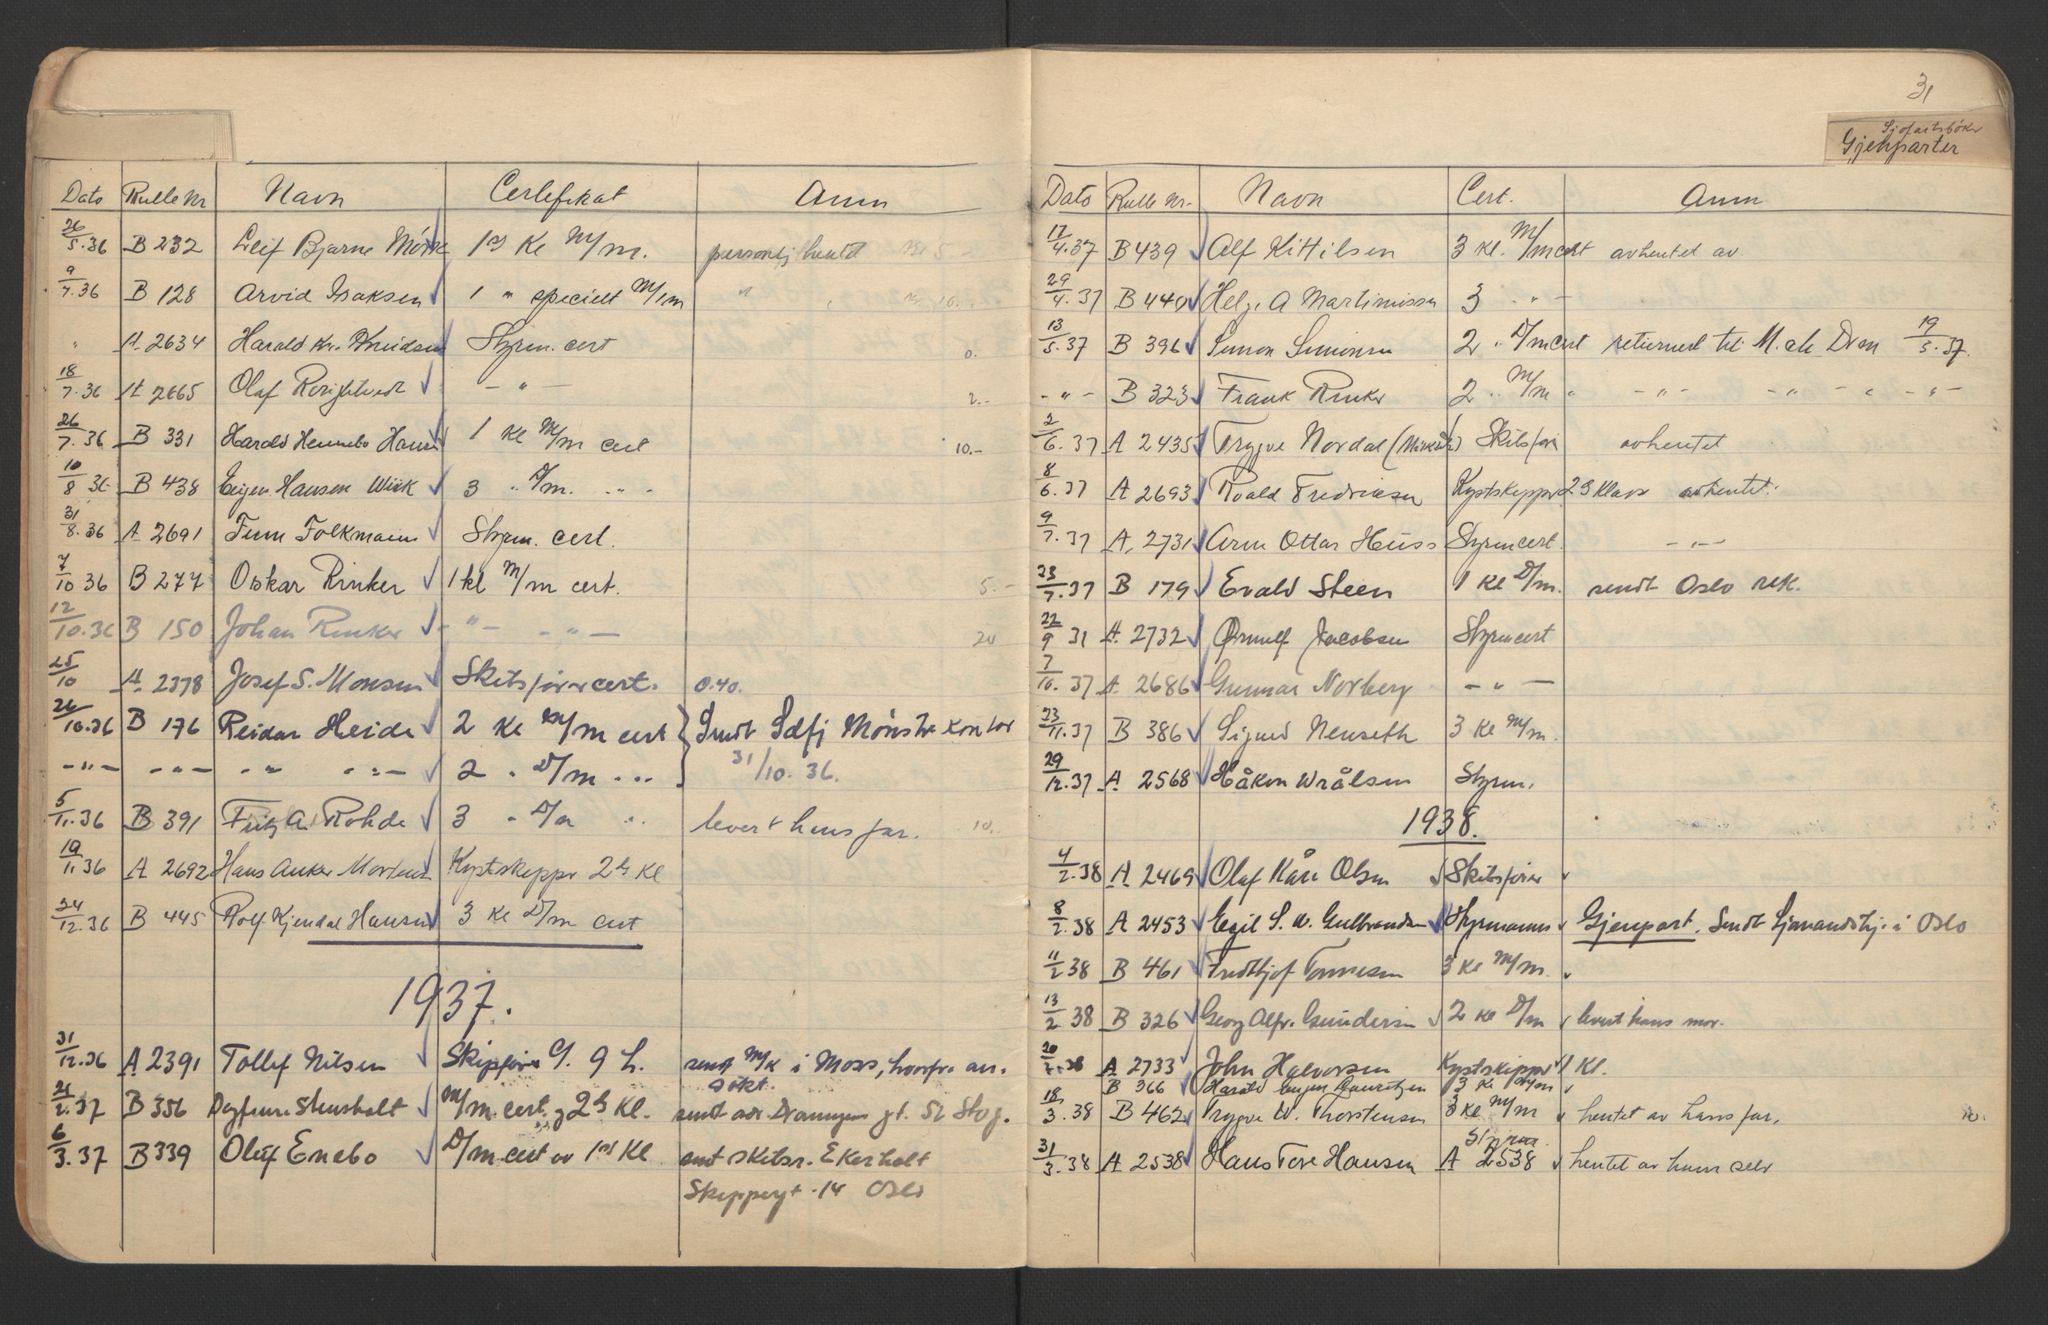 Dato Rulle Nr Navn Certifikat Anm
26/5.36 B 232 Leif Bjarne Mørk 1ste Kl M/m. personlig hentet
9/7.36 B 128 Arvid Isaksen 1 " specielt M/m " 10.
" A 2634 Harald Kr. Knudsen Styrm. cert 0.
18/7.36 A 2665 Olaf - " - 2.-
26/7.36 B 331 Harald Hansen 1 Kl M/m cert 10.-
10/8 36 B 438 Hansen Wiik 3 " D/m. " -
31/8.36 A 2691 Finn Folkmann Styrm. cert.
7/10 36 B 277 Oskar Rinker 1 kl M/m cert. 5.-
12/10.36 B 150 Johan Rinker - " - - " - 20
25/10 A 2378 Josef S. Monsen Skibsførercert. 0.40.
26/10.36 B 176 Reidar Heide 2 Kl M/m cert } Sendt Mønstr kontor
- " - - " - " " - 2 " D/m " " 31/10. 36.
5/11.36 B 391 Fritz A. Rohde 3 " D/m " levert hans far. 10.
19/11.36 A 2692 Hans Anker Mortensen Kystskippr 2den Kl
24/12.36 B 445 Rolf Kjendal Hansen 3 Kl D/m cert
1937.
31/12.36 A 2391 Tollef Nilsen Skipsfører 9 h. sendt M/K i Moss, hvorfra an-
søkt.
21/2.37 B 356 Dagfinn Stensholt M/m cert. 2den Kl. sendt
6/3.37 B 339 Oluf Enebo D/m cert 1ste Kl sendt skibsr. Ekerholt
Skippergt. 14 Oslo
31
Sjøfartsbøker
Gjenparter
Dato Rulle Nr. Navn Cert. Anm
17/4.37 B 439 Alf Kittilsen 3 Kl. M/m cert avhentet av
29/4.37 B 440 Helge A Martinissen 3 " -
13/5.37 B 396 Simon Simonsen 2 " D/m cert returnert til M.ak Dram 19/5.37.
- " - B 323 Frank Rinker 2 " M/m " - " - - " - " - " -
2/6.37 A 2435 Trygve Nordal Skibsfører avhentet
8/6.37 A 2693 Roald Fredriksen Kystskippr 2den Klasse avhentet.
9/7.37 A 2731 Arne Ottar Huss Styrmcert. - " -
23/7.37 B 179 Evald Steen 1 Kl D/m. sendt Oslo rek.
22/9 31 A 2732 Ørnulf Jacobsen Styrmcert
7/10.37 A 2686 Gunnar Norberg - " -
23/11.37 B 386 Sigurd Neuseth 3 Kl M/m.
29/12.37 A 2568 Håkon Wrålsen Styrm.
1938.
4/2.38 A 2469 Olaf Kåre Olsen Skibsfører
8/2.38 A 2453 Egil S. W. Gulbrandsen Styrmanns Gjenpart. Sendt Sjømandshj. i Oslo
11/2 38 B 461 Fridtjof Tonnesen 3 Kl M/m.
13/2 38 B 326 Georg Alfr. Gundersen 2 Kl D/m levert hans mor.
A 2733 John Halvorsen Kystskippr 1 Kl.
B 366 Harald Lauritzen 3 Kl D/m
18/3.38 B 462 Trygve W. Thorstensen 3 Kl M/m hentet av hans far. 10.
31/3.38 A 2538 Hans Tore Hansen Styrm A 2538 hentet av ham selv